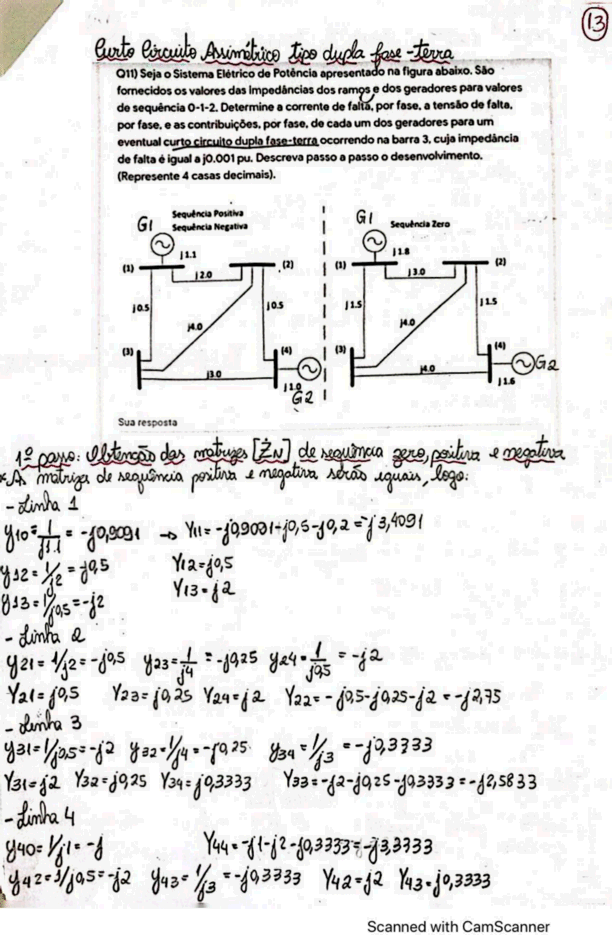 13
Curto Circuito Assimétrico tipo dupla fase-terra
Q11) Seja o Sistema Elétrico de Potência apresentado na figura abaixo. São
fornecidos os valores das impedâncias dos ramos e dos geradores para valores
de sequência 0-1-2. Determine a corrente de falta, por fase, a tensão de falta,
por fase, e as contribuições, por fase, de cada um dos geradores para um
eventual curto circuito dupla fase-terra ocorrendo na barra 3, cuja impedância
de falta é igual a j0.001 pu. Descreva passo a passo o desenvolvimento.
(Represente 4 casas decimais).
G1 Sequência Positiva
Sequência Negativa
j1.1
(1) (2)
j2.0
j0.5 j0.5
j4.0
(3) (4)
j3.0
j1.0
G2
G1 Sequência Zero
j1.8
(1) (2)
j3.0
j1.5 j1.5
j4.0
(3) (4)
G2
j4.0
j1.6
Sua resposta
1º passo: Obtenção das matrizes [ŻN] de sequência zero, positiva e negativa
* As matrizes de sequência positiva e negativa serão iguais, logo:
- Linha 1
y10 = 1/j1.1 = -j0,9091 → Y11 = -j0,9091-j0,5-j0,2 = -j3,4091
y12 = 1/j2 = -j0,5 Y12 = j0,5
y13 = 1/j0,5 = -j2 Y13 = j2
- Linha 2
y21 = 1/j2 = -j0,5 y23 = 1/j4 = -j0,25 y24 = 1/j0,5 = -j2
Y21 = j0,5 Y23 = j0,25 Y24 = j2 Y22 = -j0,5-j0,25-j2 = -j2,75
- Linha 3
y31 = 1/j0,5 = -j2 y32 = 1/j4 = -j0,25 y34 = 1/j3 = -j0,3333
Y31 = j2 Y32 = j0,25 Y34 = j0,3333 Y33 = -j2-j0,25-j0,3333 = -j2,5833
- Linha 4
y40 = 1/j1 = -j Y44 = -j1-j2-j0,3333 = -j3,3333
y42 = 1/j0,5 = -j2 y43 = 1/j3 = -j0,3333 Y42 = j2 Y43 = j0,3333
Scanned with CamScanner